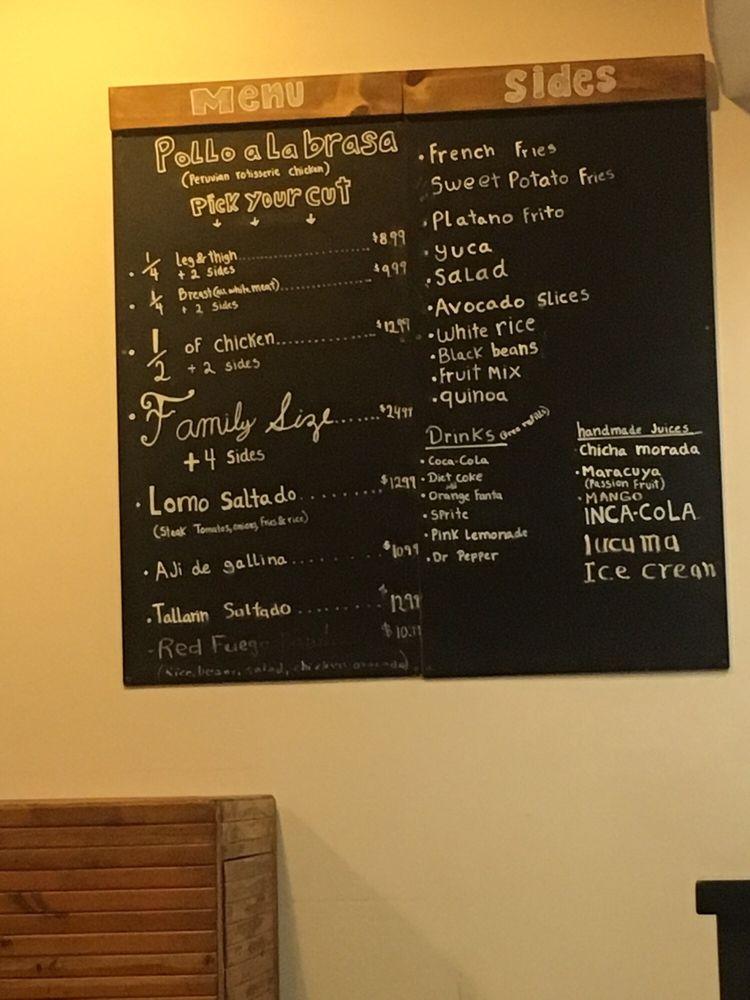 Menu
Pollo a la brasa
(Peruvian rotisserie chicken)
Pick your cut
1/4 leg & thigh.................. $8.99
+ 2 sides
1/4 Breast (all white meat)............ $9.99
+ 2 sides
1/2 of chicken............. $12.99
+ 2 sides
Family Size....... $24.99
+4 Sides
Lomo Saltado........ $12.99
(Steak Tomatoes, onions, fries & rice)
AJi de gallina......... $10.99
Tallarin Saltado........ $12.99
-Red Fuego $10.
(Rice, beans, salad, chicken, avocado)
Sides
French Fries
Sweet Potato Fries
Platano Frito
yuca
Salad
Avocado Slices
White rice
Black beans
Fruit MIX
quinoa
Drinks (free refills)
Coca-Cola
Diet Coke
Orange Fanta
Sprite
Pink Lemonade
Dr Pepper
handmade Juices
Chicha morada
Maracuya
(Passion Fruit)
MANGO
INCA-COLA
lucuma
Ice cream